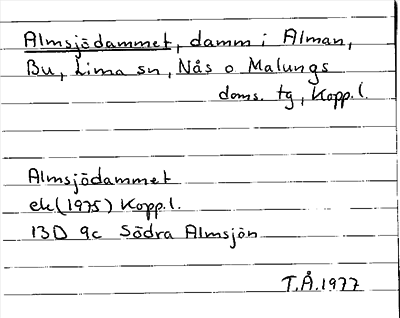 Almsjödammet, damm i Alman,
Bu, Lima sn, Nås o Malungs
doms. tg, Kopp.l.
Almsjödammet
ek (1975) Kopp.l.
13D 9c Södra Almsjön
T.Å.1977